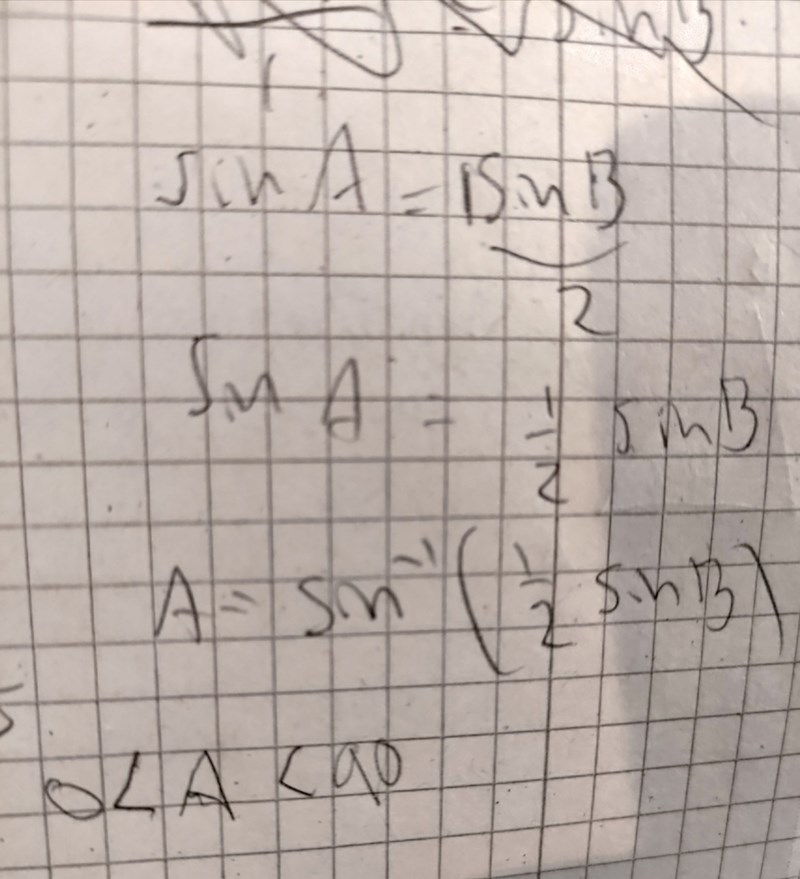 sin A = 1sin B / 2
sin A = 1/2 sin B
A = sin⁻¹ (1/2 sin B)
0 < A < 90